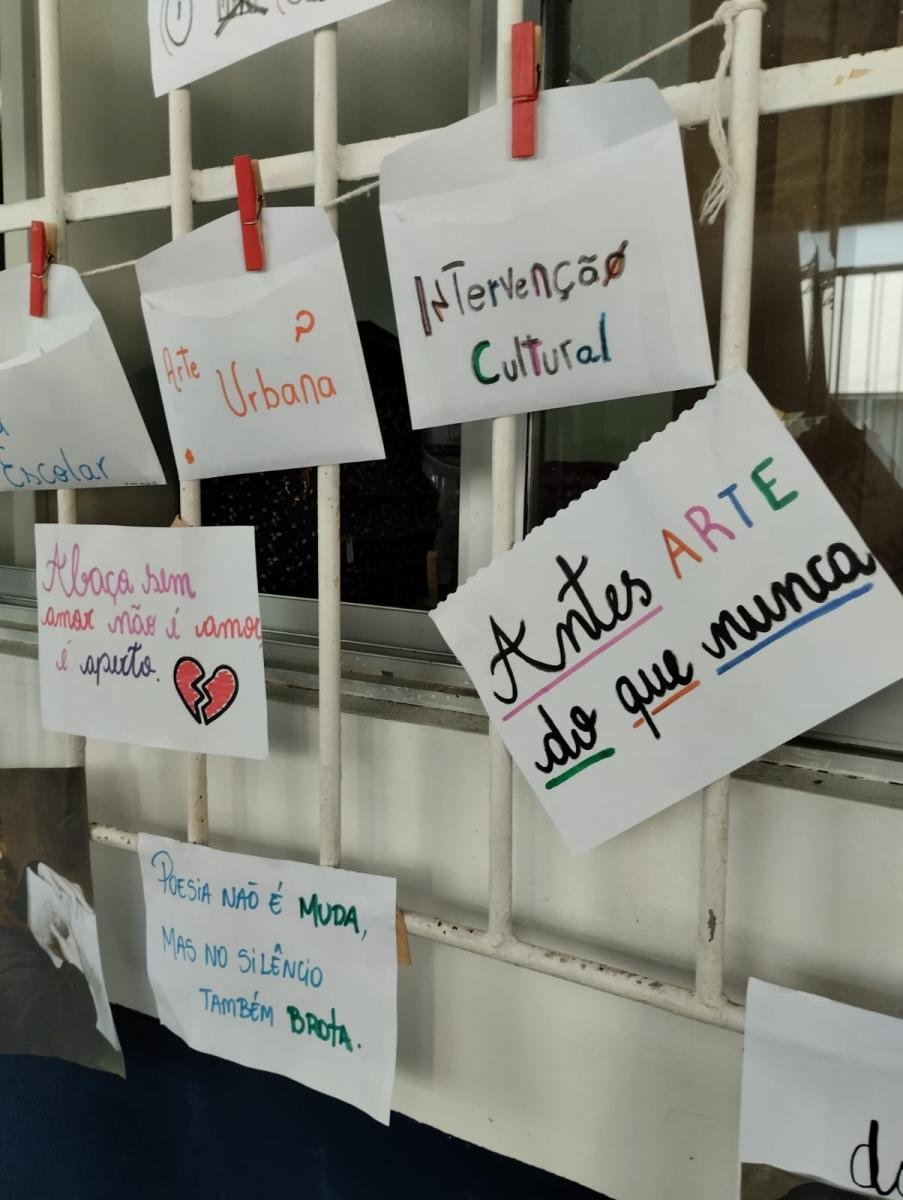 Intervenção
Cultural
Arte
Urbana
Escolar
Antes ARTE
do que nunca
Abaço sem
amor não é amor,
é aperto.
POESIA NAÕ É MUDA,
MAS NO SILÊNCIO
TAMBÉM BROTA.